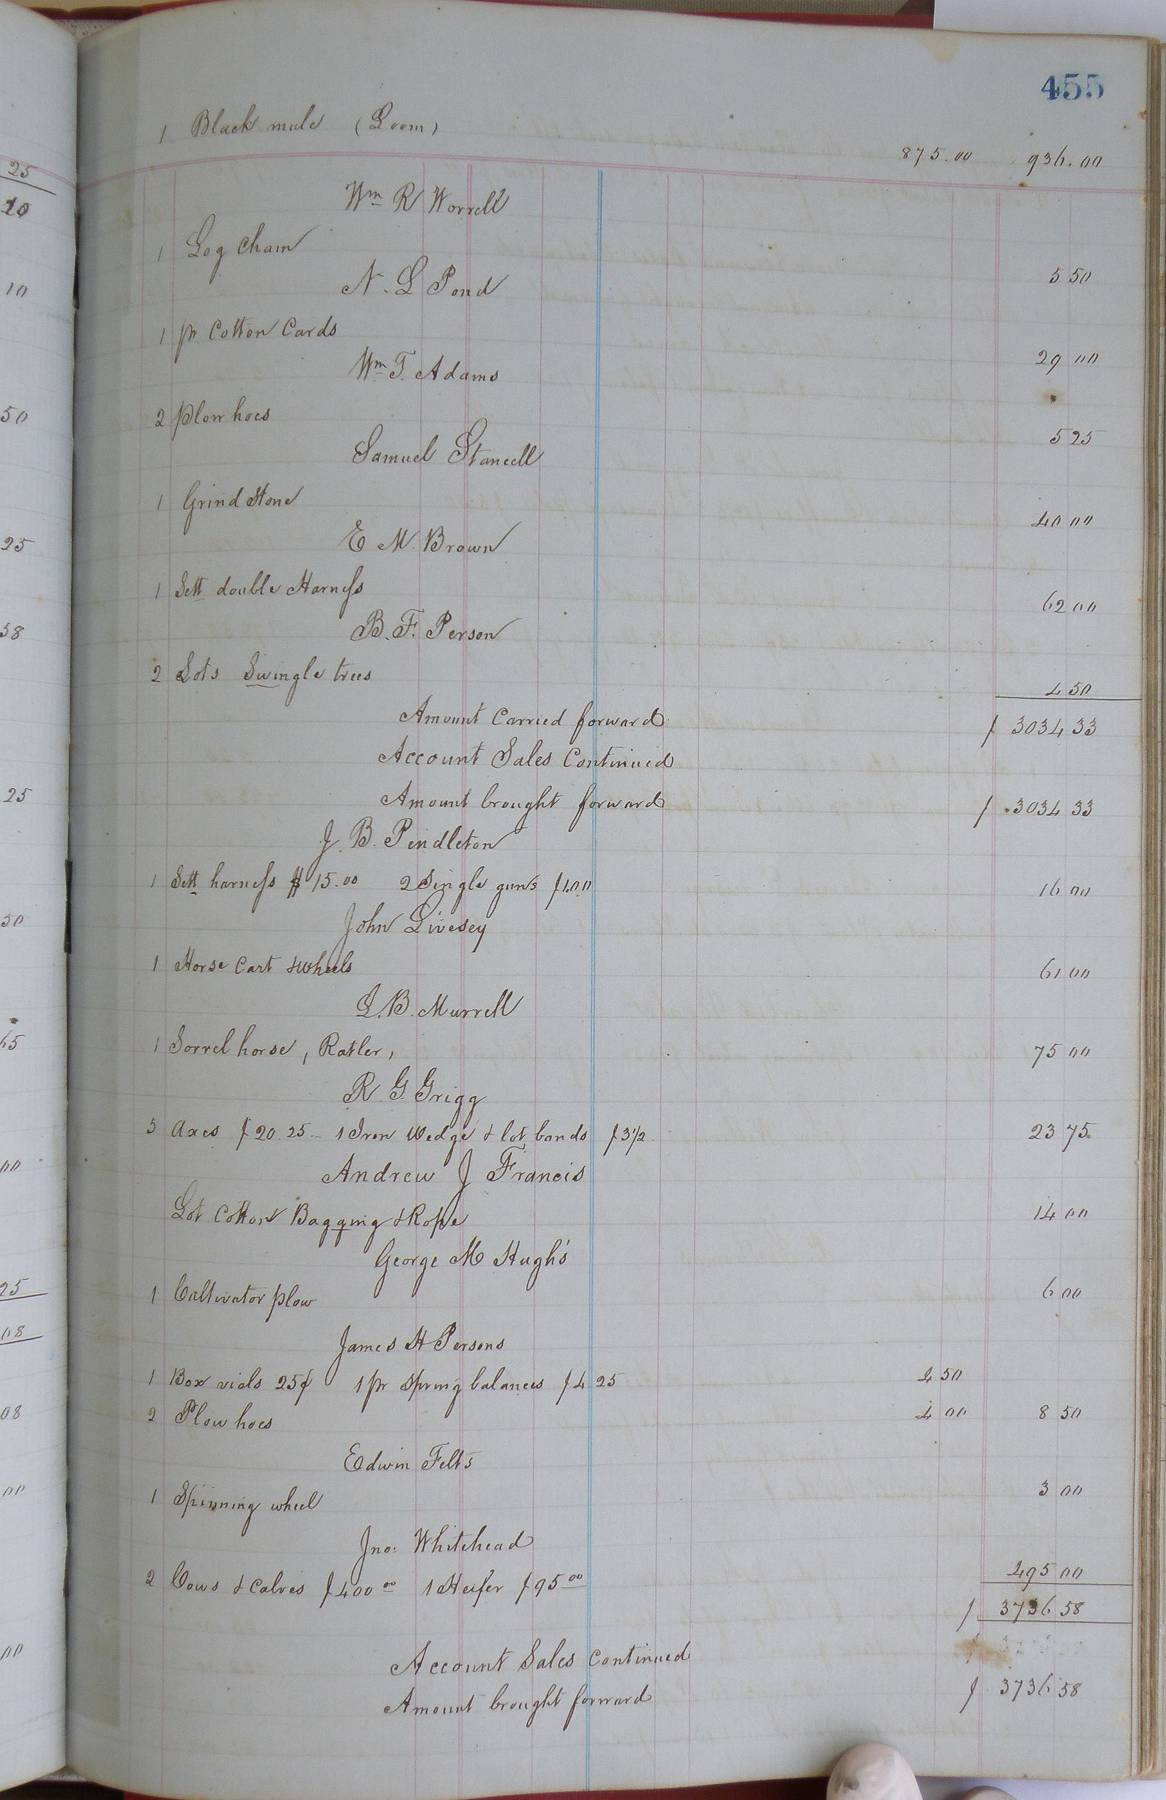 455
1 Black mule (Loom) 875.00 936.00
Wm R Worrell
1 Log Chain 5 50
N. L Pond
1 pr Cotton Cards 29 00
Wm T. Adams
2 plow hoes 5 25
Samuel Stancell
1 Grind Stone 40 00
E M. Brown
1 Sett double Harness 62 00
B. F. Person
2 Lots Swingle trees 4 50
Amount Carried forward $ 3034 33
Account Sales Continued
Amount brought forward $ 3034 33
J. B. Pendleton
1 Sett harness $15.00 2 Single guns $1.00 16 00
John Livesey
1 Horse Cart & Wheels 61 00
L. B. Murrell
1 Sorrel horse, Ratler, 75 00
R G. Grigg
5 Axes $20.25 1 Iron Wedge & lot bands $3 1/2 23 75
Andrew J Francis
Lot Cotton Bagging & Rope 14 00
George M Hugh's
1 Cultivator plow 6 00
James H Persons
1 Box vials 25¢ 1 pr Spring balances $4 25 4 50
2 Plow hoes 4 00 8 50
Edwin Felts
1 Spinning wheel 3 00
Jno. Whitehead
2 Cows & Calves $400 00 1 Heifer $95 00 495 00
$ 3736 58
Account Sales Continued
Amount brought forward $ 3736 58